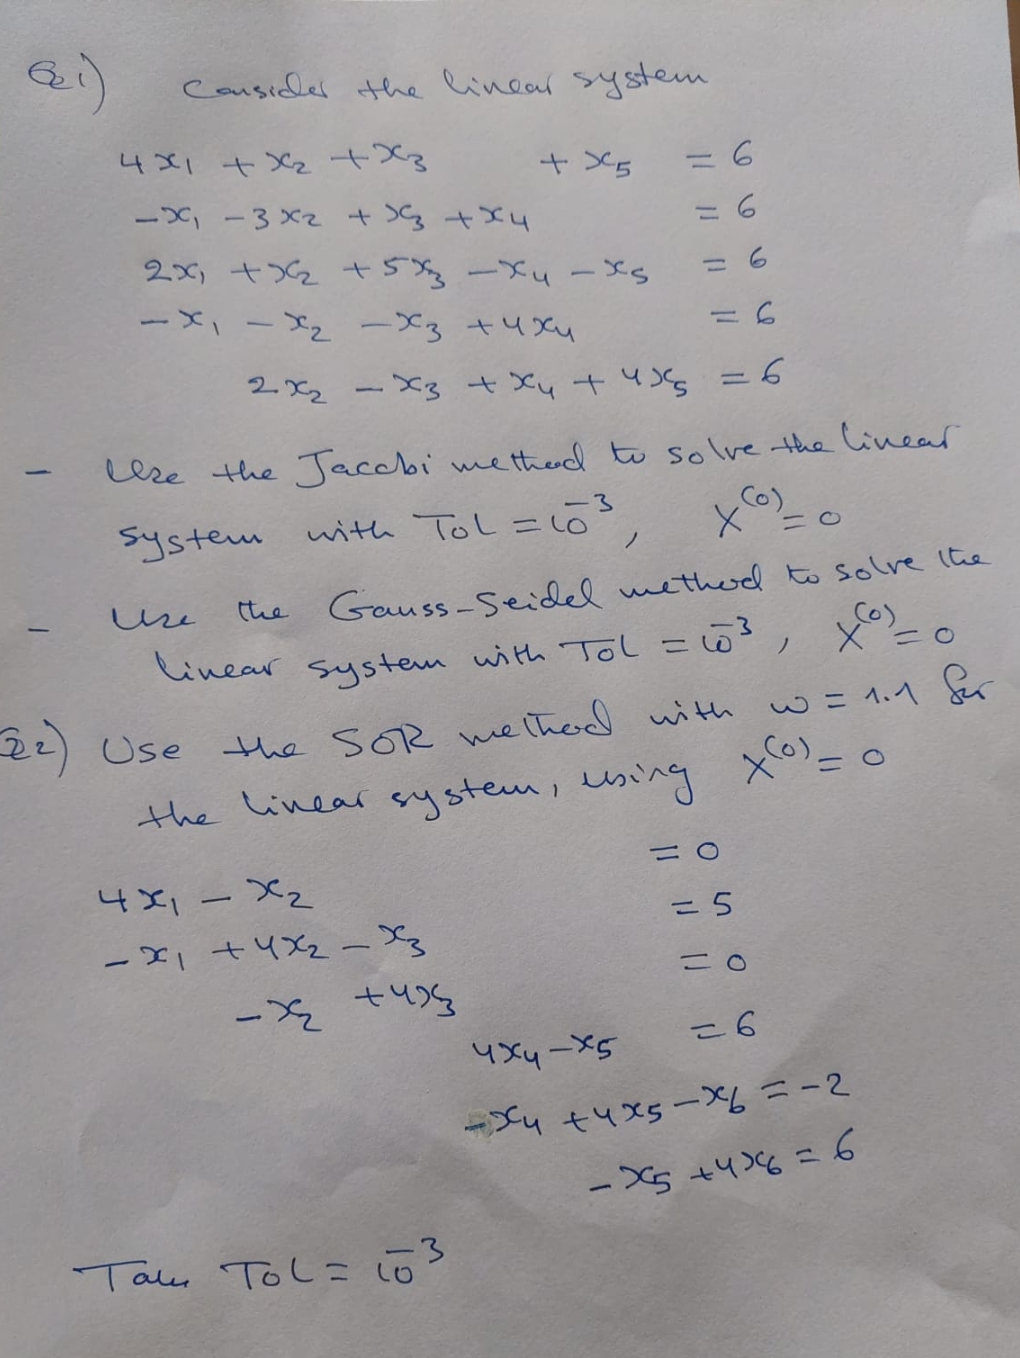 Q1) Consider the linear system
4x₁ + x₂ + x₃ + x₅ = 6
-x₁ - 3x₂ + x₃ + x₄ = 6
2x₁ + x₂ + 5x₃ - x₄ - x₅ = 6
-x₁ - x₂ - x₃ + 4x₄ = 6
2x₂ - x₃ + x₄ + 4x₅ = 6
- Use the Jacobi method to solve the linear
system with TOL = 10⁻³, X⁽⁰⁾ = 0
- Use the Gauss-Seidel method to solve the
linear system with TOL = 10⁻³, X⁽⁰⁾ = 0
Q2) Use the SOR method with w = 1.1 for
the linear system, using X⁽⁰⁾ = 0
4x₁ - x₂ = 0
-x₁ + 4x₂ - x₃ = 5
-x₂ + 4x₃ = 0
4x₄ - x₅ = 6
-x₄ + 4x₅ - x₆ = -2
-x₅ + 4x₆ = 6
Take TOL = 10⁻³